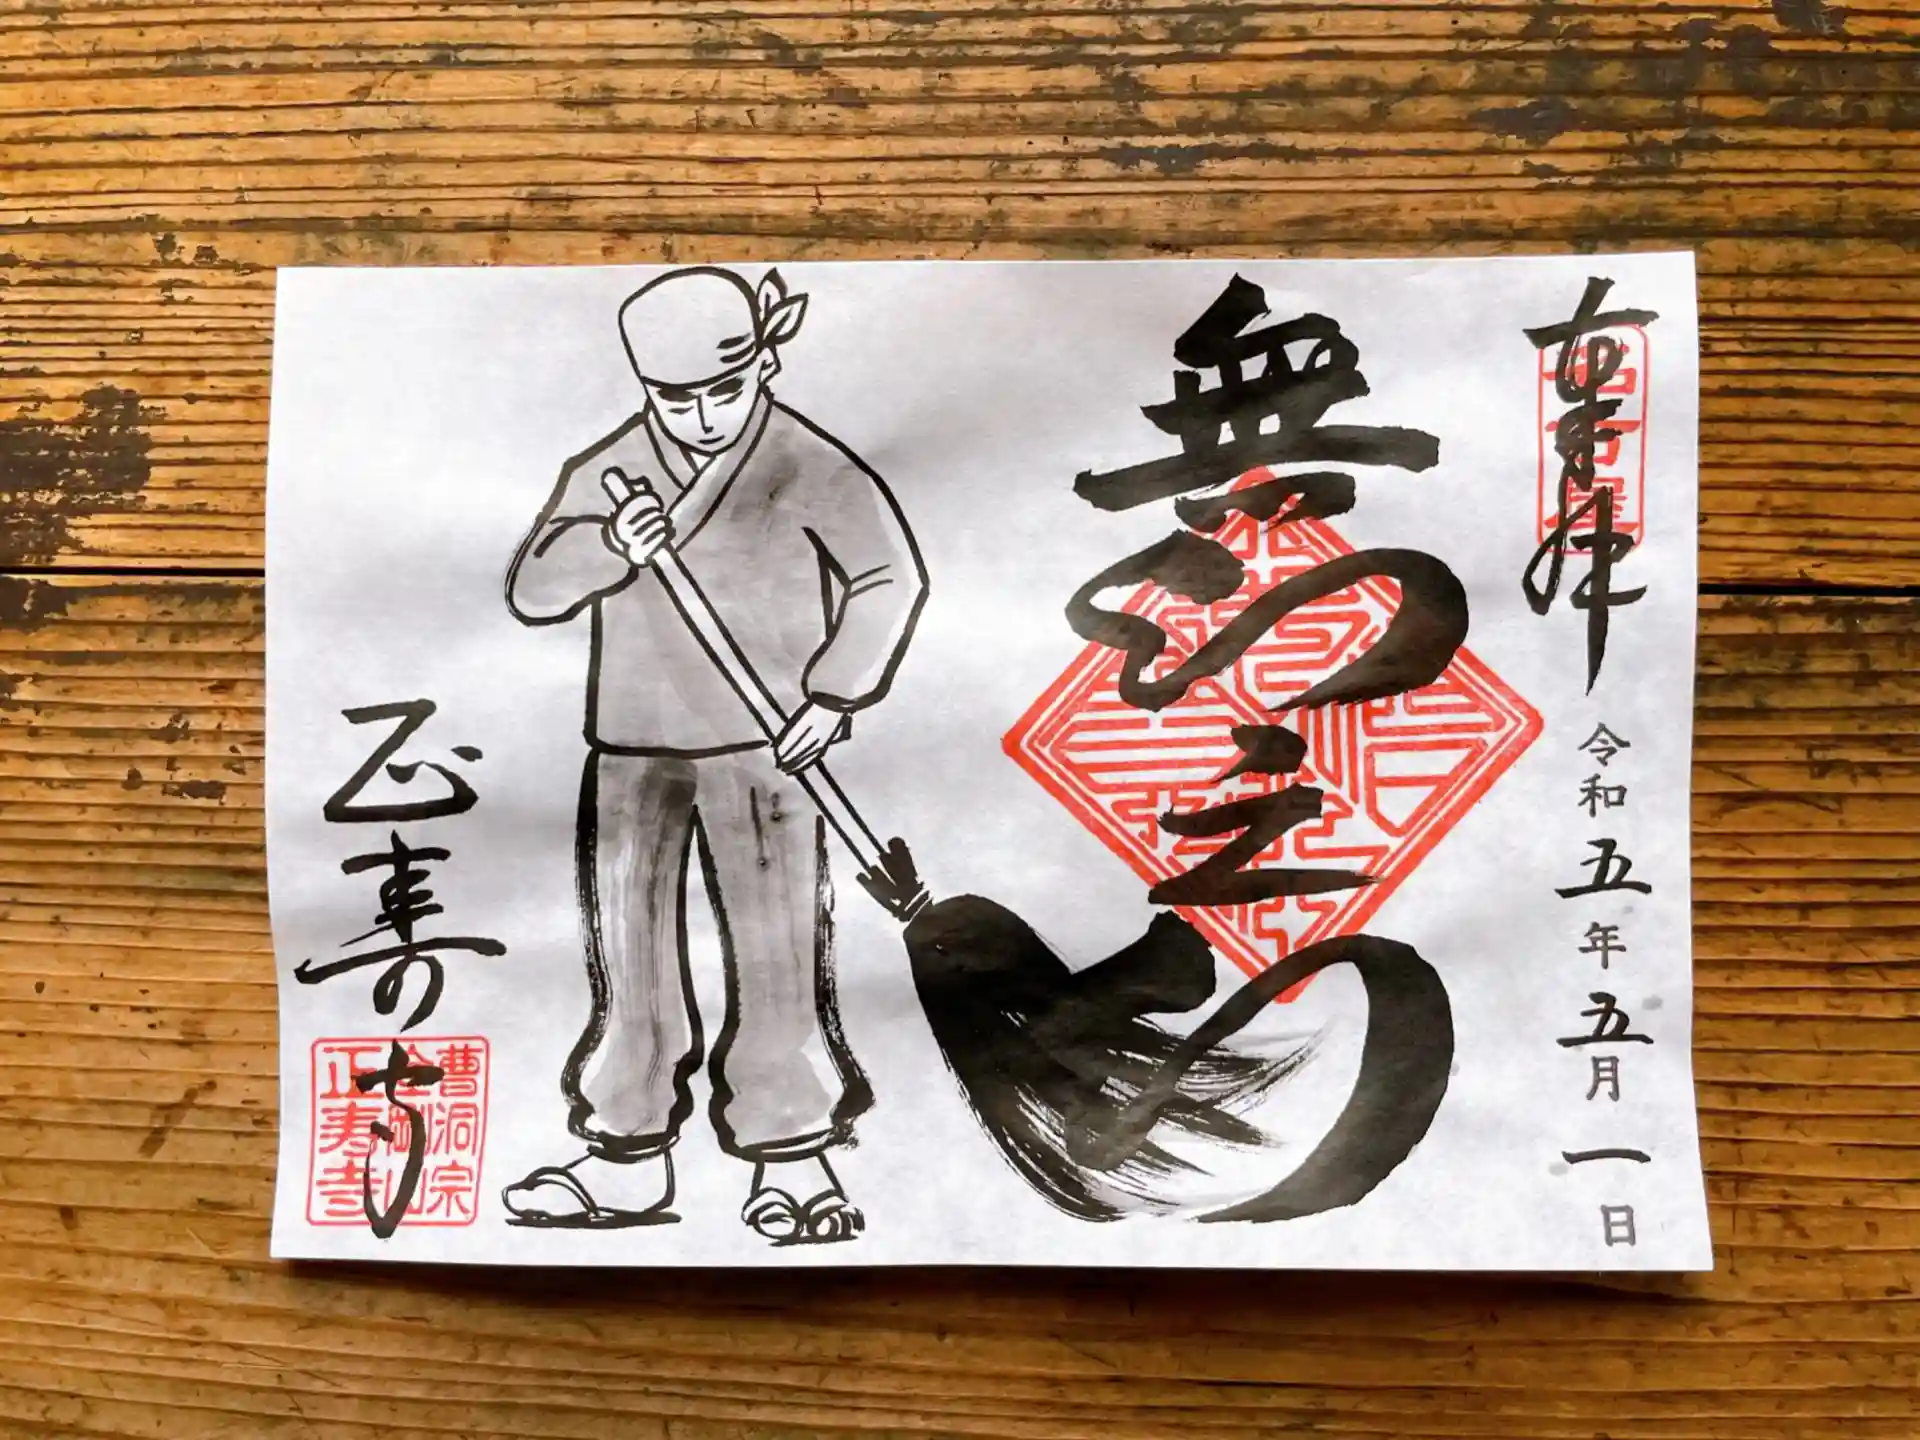 奉拝
名古屋
令和五年五月一日
無功之功
正寿寺
曹洞宗
正寿寺